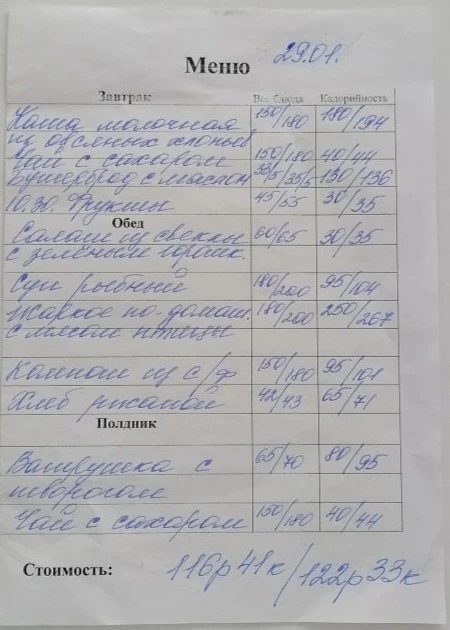 Меню 29.01.
Завтрак Вес блюда Калорийность
Каша молочная 150/180 180/194
из овсяных хлопьев
Чай с сахаром 150/180 40/44
Бутерброд с маслом 33/5/35/5 130/136
10.30. Фрукты 45/55 30/35
Обед
Салат из свеклы 60/65 30/35
с зелёным горошк.
Суп рыбный 180/200 95/104
Жаркое по-домаш. 180/200 250/267
с мясом птицы
Компот из с/ф 150/180 95/101
Хлеб ржаной 42/43 65/71
Полдник
Ватрушка с 65/70 80/95
творогом
Чай с сахаром 150/180 40/44
Стоимость: 116р41к/122р33к